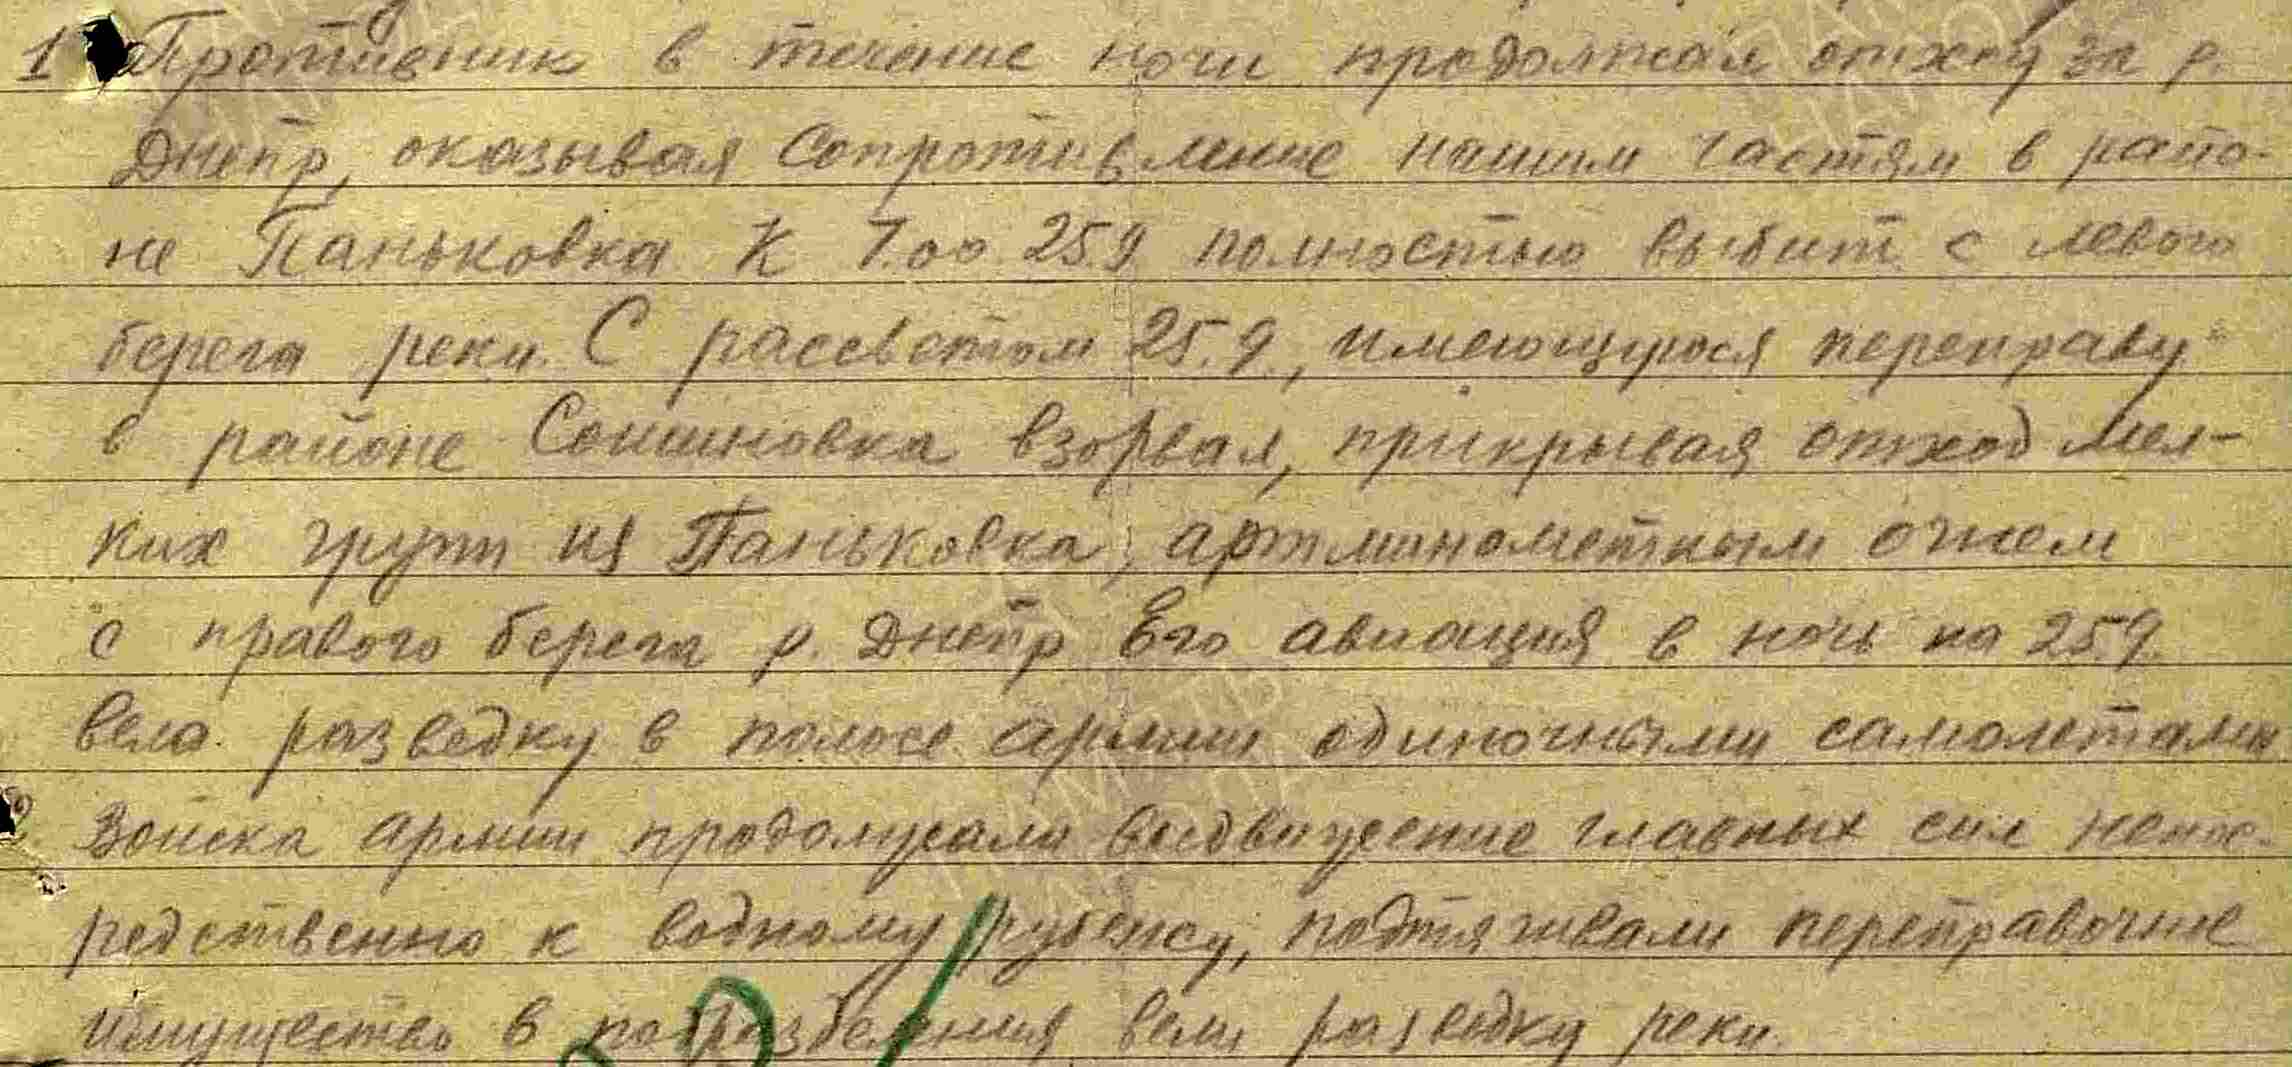 1 Противник в течение ночи продолжал отход за р.
Днепр, оказывая сопротивление нашим частям в райо-
не Паньковка К 7.00 25.9 полностью выбит с левого
берега реки. С рассветом 25.9., имеющуюся переправу
в районе Сошиновка взорвал, прикрывая отход мел-
ких групп из Паньковка, артминометным огнем
с правого берега р. Днепр Его авиация в ночь на 25.9.
вела разведку в полосе армии одиночными самолетами
Войска армии продолжали выдвижение главных сил непос-
редственно к водному рубежу, подтягивали переправочные
имущество в подразделения вели разведку реки.